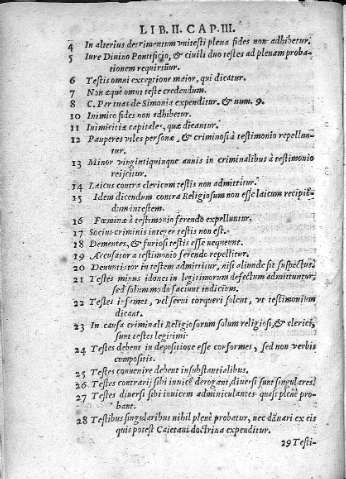 LIB. II. CAP. III.
4 In alterius detrimentum vni testi plena fides non adhibetur.
5 Iure Diuino Pontificio, & ciuili duo testes ad plenam proba-
tionem requiritur.
6 Testis omni exceptione maior, qui dicatur.
7 Non æquè omni teste credendum.
8 C. Per tuas de Simonia expenditur, & num. 9.
10 Inimico fides non adhibetur.
11 Inimicitiæ capitales, quæ dicantur.
12 Pauperes viles personæ, & criminosi à testimonio repellun-
tur.
13 Minor vigintiquinque annis in criminalibus à testimonio
reijcitur.
14 Laicus contra clericum testis non admittitur.
15 Idem dicendum contra Religiosum non esse laicum recipiē-
dum in testem.
16 Fœminæ à testimonio ferendo expelluntur.
17 Socius criminis integer testis non est.
18 Dementes, & furiosi testis esse nequeunt.
19 Accusator a testimonio ferendo repellitur.
20 Denuntiator in testem admittitur, nisi aliunde sit suspectus.
21 Testes minus idonei in legitimorum defectum admittuntur,
sed solùm modo faciunt indicium.
22 Testes vel serui torqueri solent, vt testimonium
dicant.
23 In causa criminali Religiosorum solum religiosi, & clerici,
sunt testes legitimi
24 Testes debent in depositione esse conformes, sed non verbis
compositis.
25 Testes conuenire debent in substantialibus.
26 Testes contrarij sibi inuicē derogant, diuersi sunt singulares.
27 Testes diuersi sibi inuicem adminiculantes quasi plenè pro-
bant.
28 Testibus singularibus nihil plenè probatur, nec dānari ex eis
quis potest Caietani doctrina expenditur.
29 Testi-